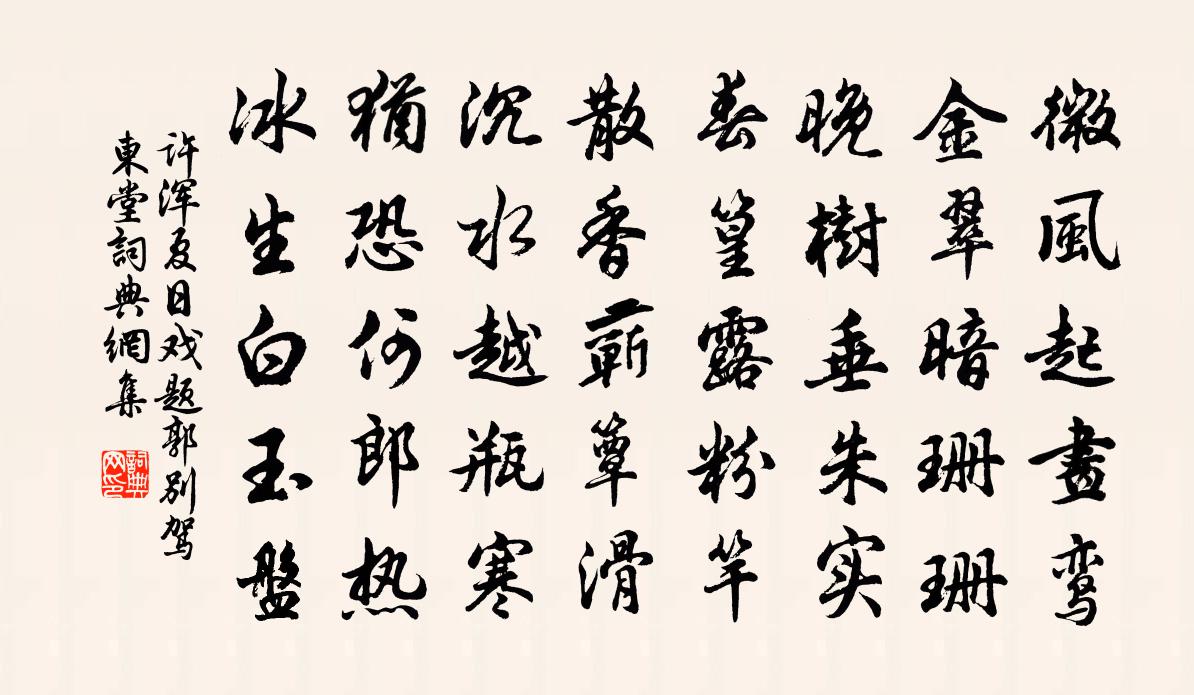 微風起畫鸾
金翠暗珊珊
晚樹垂朱实
春篁露粉竿
散香蕲簟滑
沉水越瓶寒
猶恐何郎热
冰生白玉盤
许浑夏日戏题郭别驾
東堂詞典網集
詞典网印